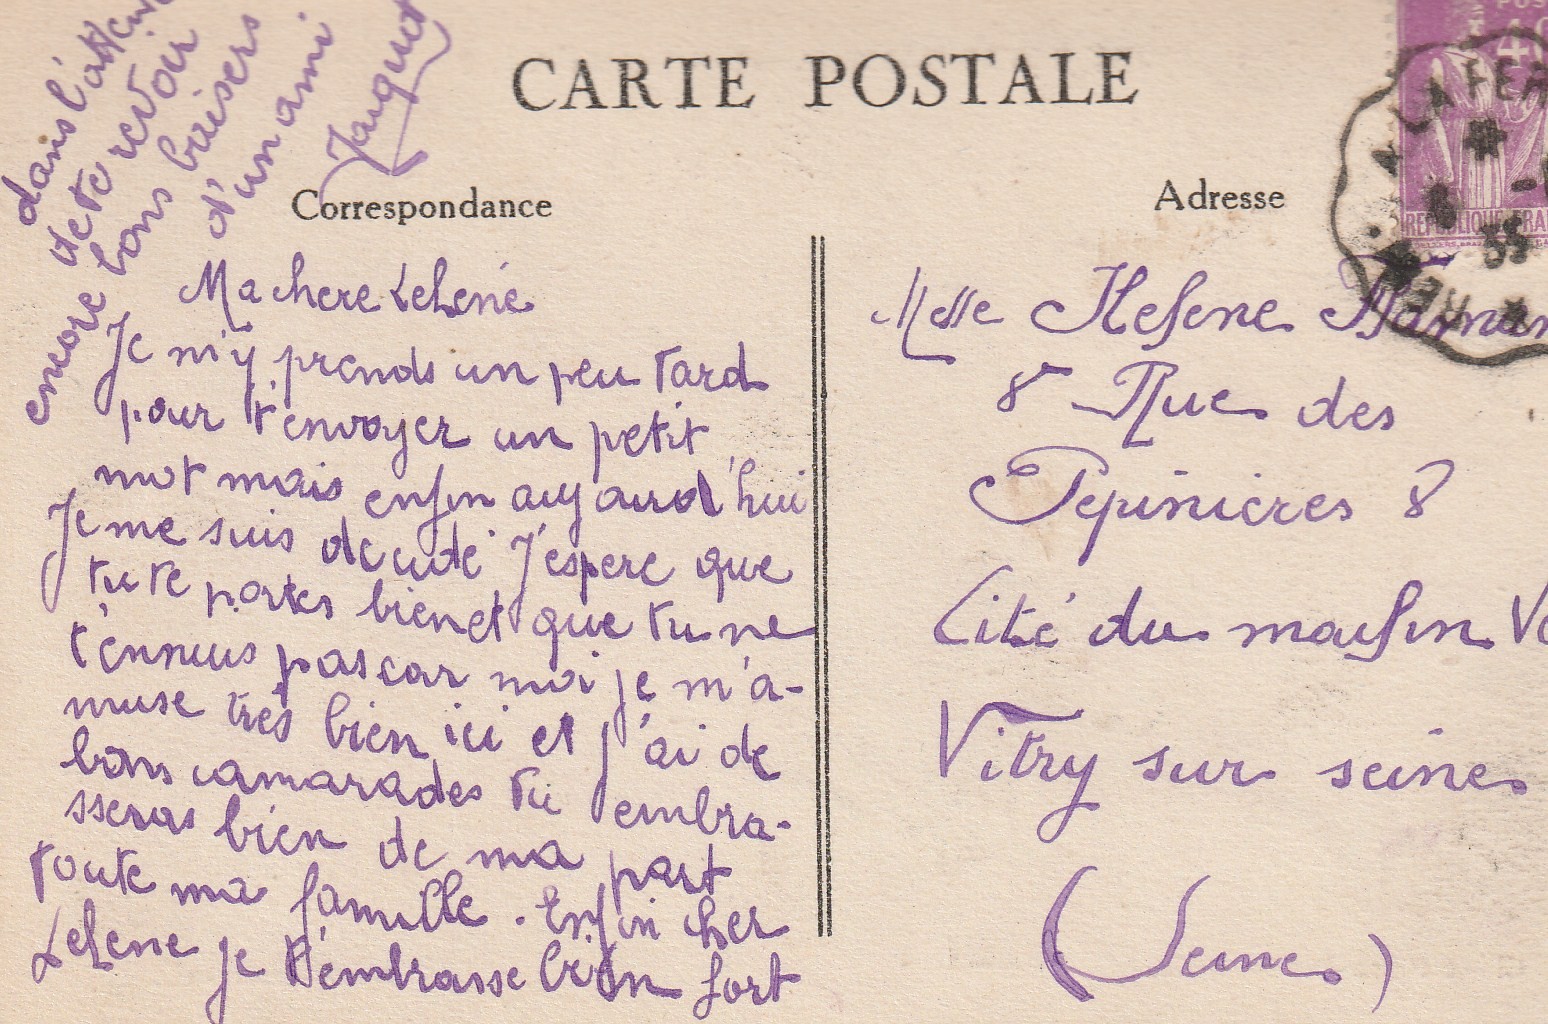 CARTE POSTALE
Correspondance
Ma chere Lehené
Je m'y prends un peu tard
pour t'envoyer un petit
mot mais enfin auyourd'hui
Je me suis decidé J'espere que
tu te portes bien et que tu ne
t'ennuis pas car moi je m'a-
muse tres bien ici et j'ai de
bons camarades tu embra-
sseras bien de ma part
toute ma famille. Enfin cher
Lehene je t'embrasse bien fort
dans l'attente
de te revoir
encore bons baisers
d'un ami
Jacquot
Adresse
Melle Helene
8 Rue des
Pepinieres 8
Cité du moulin
Vitry sur seine
(Seine)
REPUBLIQUE
35